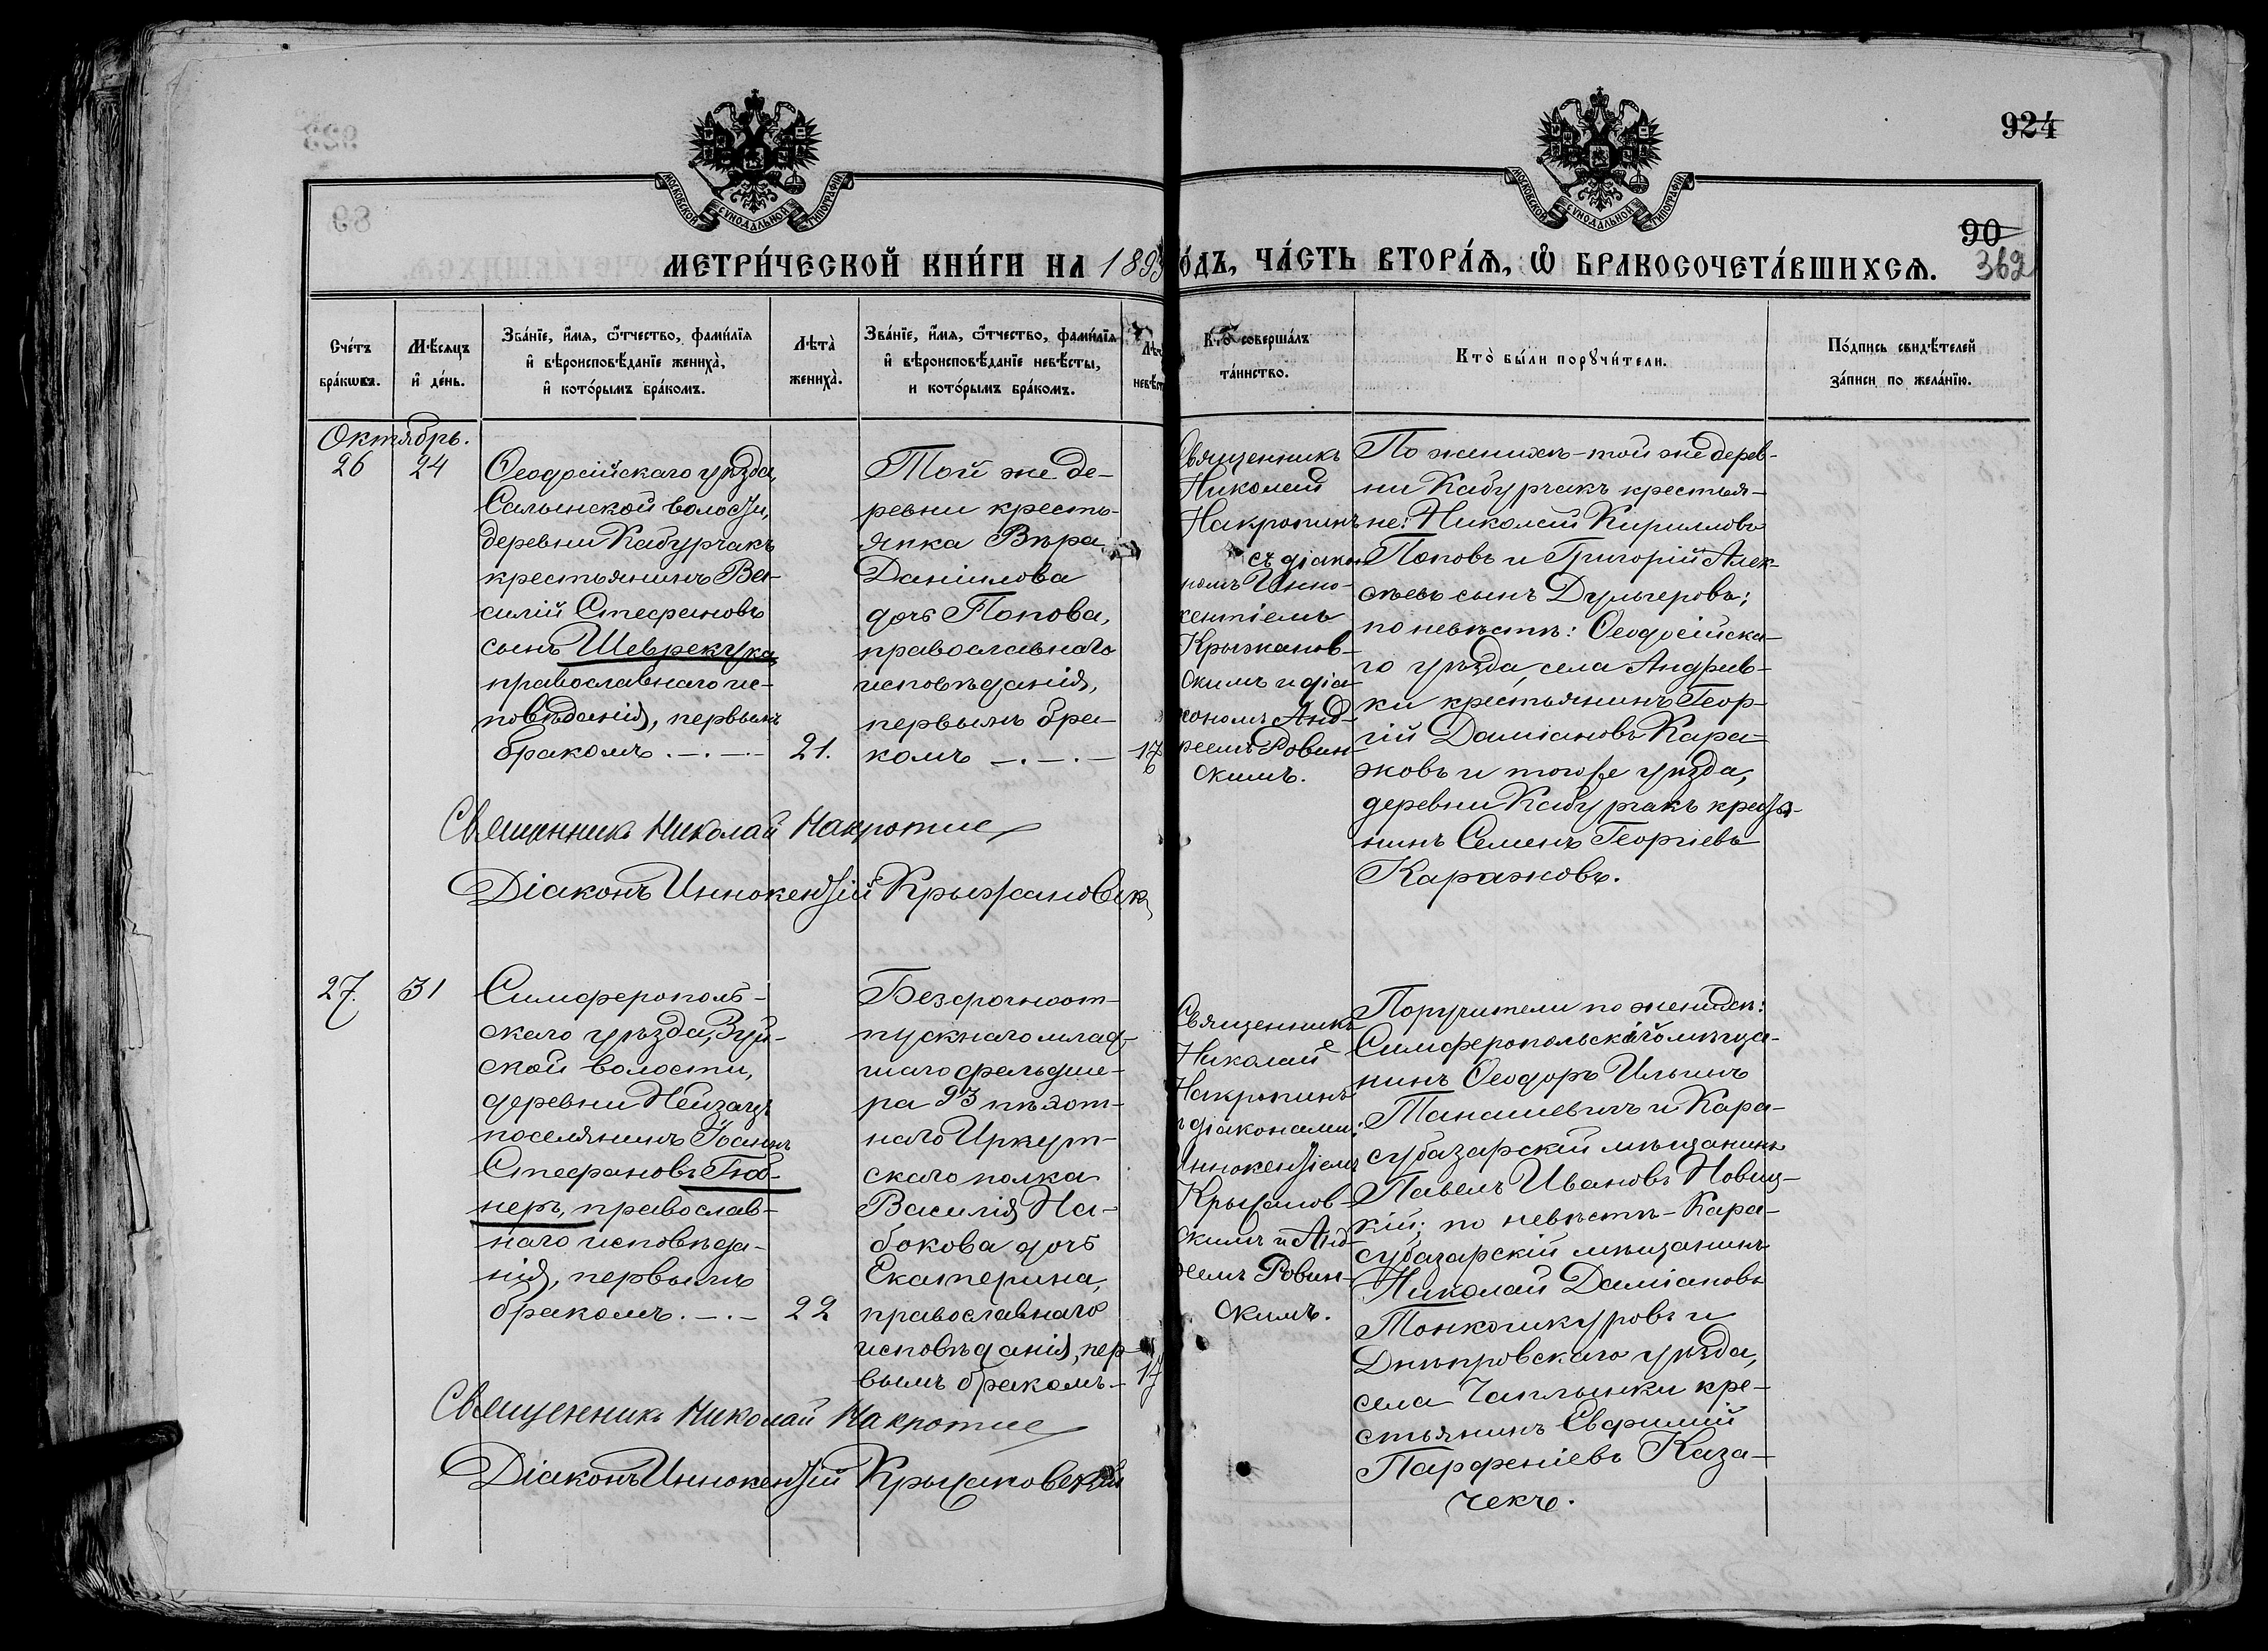 924
90
362
МОСКОВСКОЙ СѴНОДАЛЬНОЙ ТИПОГРАФИИ
МОСКОВСКОЙ СѴНОДАЛЬНОЙ ТИПОГРАФИИ
МЕТРИ́ЧЕСКОЙ КНИ́ГИ НА 1893
О́ДЪ, ЧА́СТЬ ВТОРА́Ѧ, Ѽ БРАКОСОЧЕТА́ВШИХСѦ.
Сче́тъ бра́кѡвъ.
Мѣ́сяцъ и҆ де́нь.
Зва́нїе, и҆́мя, ѻ҆́тчество, фами́лїя и҆ вѣроисповѣ́данїе жениха̀, и҆ кото́рымъ бра́комъ.
Лѣта̀ жениха̀.
Зва́нїе, и҆́мя, ѻ҆́тчество, фами́лїя и҆ вѣроисповѣ́данїе невѣ́сты, и кото́рымъ бра́комъ.
Кто̀ соверша́лъ та́инство.
Кто̀ бы́ли порꙋчи́тели.
По́дпись свидѣ́телей за́писи по жела́нїю.
Октябрь.
26
24
Ѳеодосійскаго уѣзда,
Салынской волости,
деревни Кабурчакъ
крестьянинъ Ва-
силій Стефановъ
сынъ Шеврекука,
православнаго ис-
повѣданія, первымъ
бракомъ . — . —
21.
Той же де-
ревни кресть-
янка Вѣра
Даніилова
дочь Попова,
православнаго
исповѣданія,
первымъ бра-
комъ — . — . —
17
Священникъ
Николай
Накропинъ
съ діако-
номъ Инно-
кентіемъ
Крыжанов-
скимъ и діа-
кономъ Анд-
реемъ Ровин-
скимъ.
По женихѣ - той же дерев-
ни Кабурчакъ крестья-
не: Николай Кирилловъ
Поповъ и Григорій Алек-
сѣевъ сынъ Дульгеровъ;
по невѣстѣ: Ѳеодосійска-
го уѣзда, села Андреев-
ки крестьянинъ Геор-
гій Даміановъ Кара-
жовъ и того же уѣзда,
деревни Кабурчакъ крестья-
нинъ Семенъ Георгіевъ
Каражовъ.
Священникъ Николай
Діаконъ Иннокентій Крыжановск
27.
31
Симферополь-
скаго уѣзда, Зуй-
ской волости,
деревни Нейзацъ
поселянинъ Іоаннъ
Стефановъ Гюб-
неръ, православ-
наго исповѣда-
нія, первымъ
бракомъ . — . —
22
Безсрочноот-
пускнаго млад-
шаго фельдше-
ра 93 пѣхот-
наго Иркут-
скаго полка
Василія На-
бокова дочь
Екатерина,
православнаго
исповѣданія, пер-
вымъ бракомъ. —
17
Священникъ
Николай
Накропинъ
діаконами:
Иннокентіемъ
Крыжанов-
скимъ и Анд-
реемъ Ровин-
скимъ.
Поручители по женихѣ:
Симферопольскій мѣща-
нинъ Ѳеодоръ Ильинъ
Танашевичъ и Кара-
субазарскій мѣщанинъ
Павелъ Ивановъ Новиц-
кій; по невѣстѣ - Кара-
субазарскій мѣщанинъ
Николай Даміановъ
Тонкошкуровъ и
Днѣпровскаго уѣзда,
села Чаплынки кре-
стьянинъ Евфимій
Парфеніевъ Каза-
чекъ.
Священникъ Николай
Діаконъ Иннокентій Крыжановскій